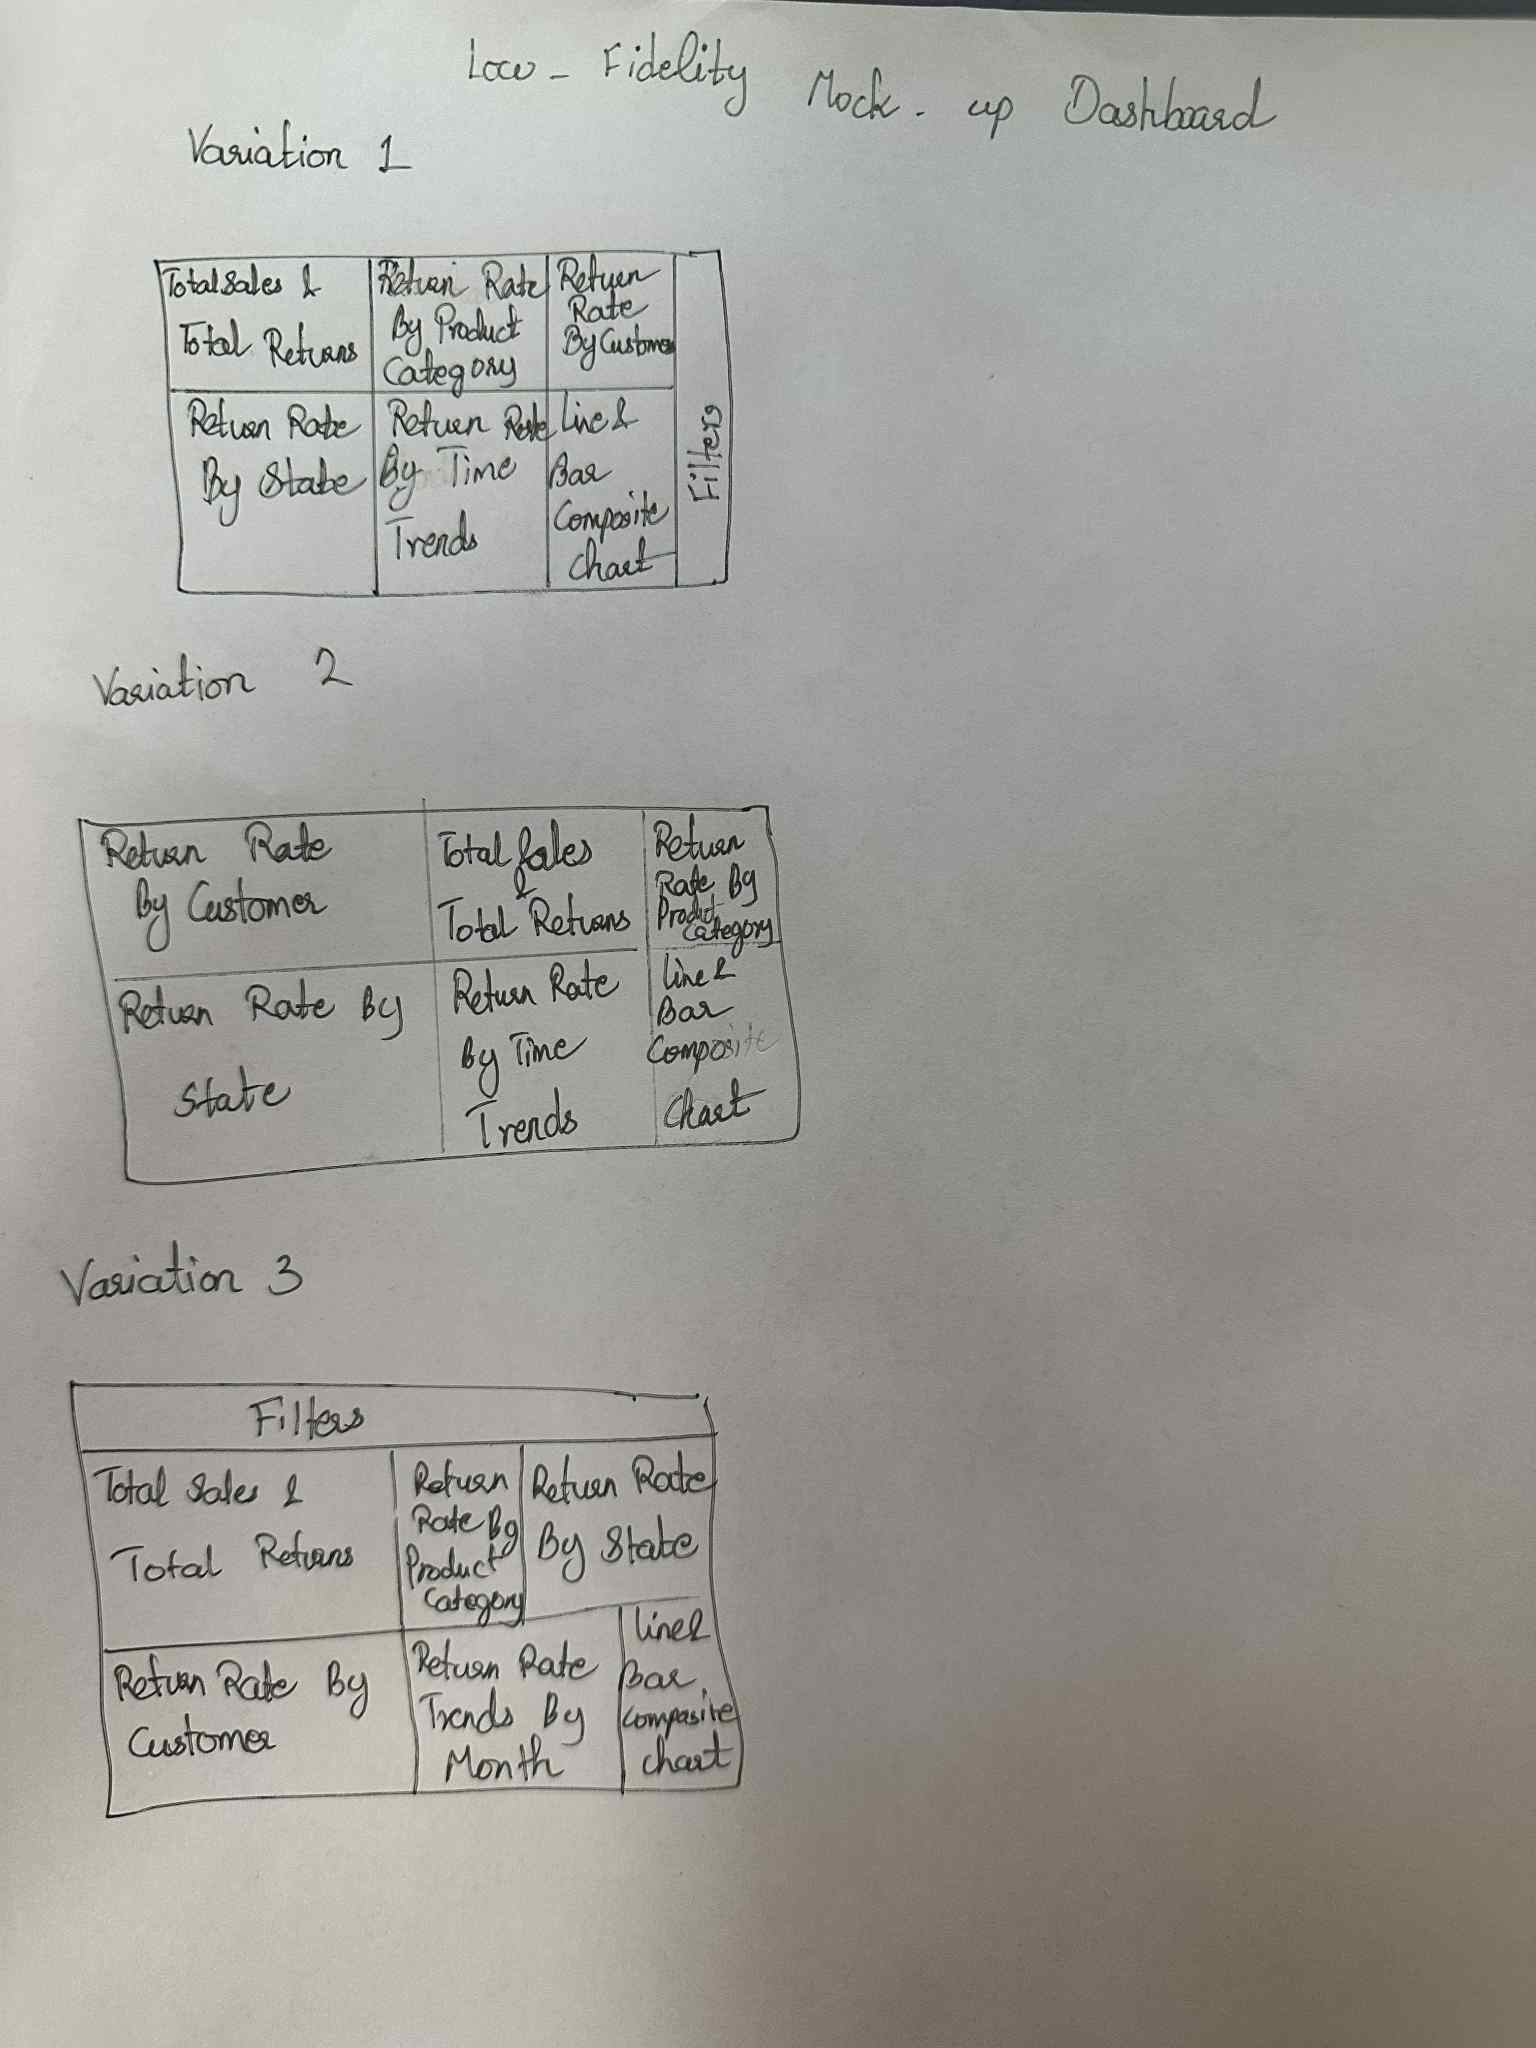 Low - Fidelity Mock - up Dashboard
Variation 1
Total Sales &
Total Returns
Return Rate
By Product
Category
Return
Rate
By Customer
Return Rate
By State
Return Rate
By Time
Trends
Line &
Bar
Composite
Chart
Filters
Variation 2
Return Rate
By Customer
Total Sales
&
Total Returns
Return
Rate By
Product
Category
Return Rate By
State
Return Rate
By Time
Trends
Line &
Bar
Composite
Chart
Variation 3
Filters
Total Sales &
Total Returns
Return
Rate By
Product
Category
Return Rate
By State
Return Rate By
Customer
Return Rate
Trends By
Month
Line &
Bar
Composite
Chart